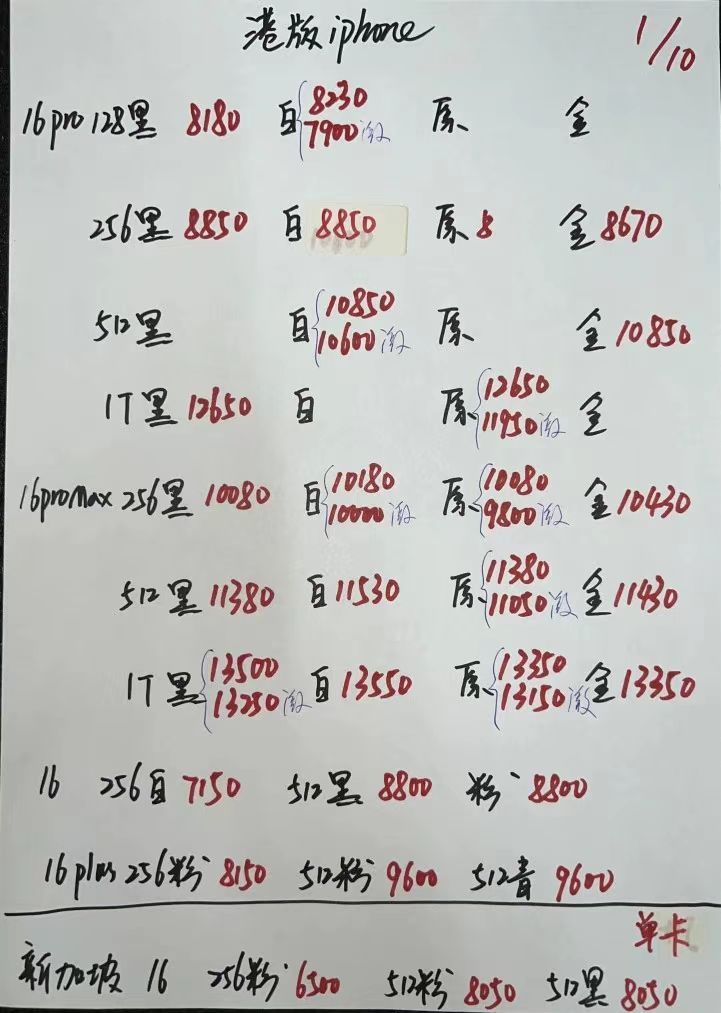 港版iphone 1/10
16pro 128黑 8180 白 8230 原 金
7900激
256黑 8850 白 8850 原 8 金 8670
512黑 白 10850 原 金 10850
10600激
1T黑 12650 白 原 12650 金
11950激
16promax 256黑 10080 白 10180 原 10080 金 10430
10000激 9800激
512黑 11380 白 11530 原 11380 金 11430
11050激
1T黑 13500 白 13550 原 13350 金 13350
13250激 13150激
16 256白 7150 512黑 8800 粉 8800
16plus 256粉 8150 512粉 9600 512青 9600
单卡
新加坡 16 256粉 6500 512粉 8050 512黑 8050